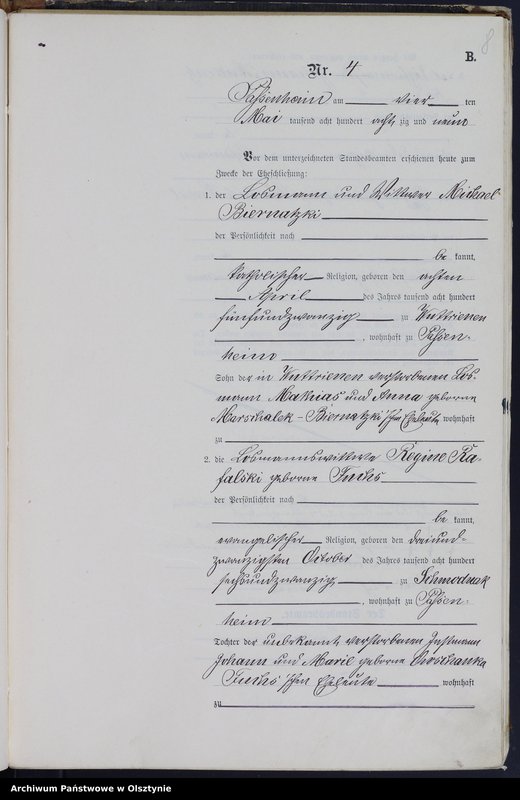 8
B.
Nr. 4
Passenheim am vier ten
Mai tausend acht hundert acht zig und neun
Vor dem unterzeichneten Standesbeamten erschienen heute zum
Zwecke der Eheschließung:
1. der Losmann und Wittwer Michael
Biernatzki
der Persönlichkeit nach
be kannt,
katholischer Religion, geboren den achten
April des Jahres tausend acht hundert
fünfundzwanzig zu Wuttrienen
, wohnhaft zu Passen-
heim
Sohn der in Wuttrienen verstorbenen Los-
mann Mathias und Anna geborne
Marschalek-Biernatzki'schen Eheleute wohnhaft
zu
2. die Losmannswittwe Regine Ra-
falski geborne Fuchs
der Persönlichkeit nach
be kannt,
evangelischer Religion, geboren den dreiund-
zwanzigsten October des Jahres tausend acht hundert
sechsundzwanzig zu Schwodnak
, wohnhaft zu Passen-
heim
Tochter der unbekannt verstorbenen Instmann
Johann und Marie geborne
Fuchs'schen Eheleute wohnhaft
zu
Archiwum Państwowe w Olsztynie